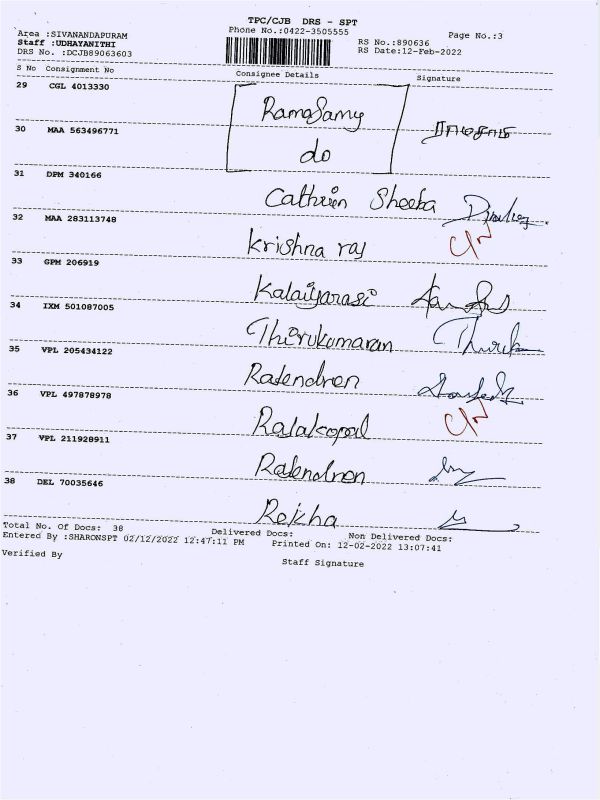 TPC/CJB DRS - SPT
Area :SIVANANDAPURAM Phone No.:0422-3505555 Page No.:3
Staff :UDHAYANITHI RS No.:890636
DRS No. :DCJB89063603 RS Date:12-Feb-2022
S No Consignment No Consignee Details Signature
29 CGL 4013330 RamaSamy
30 MAA 563496771 do
31 DPM 340166 Cathrin Sheeba
32 MAA 283113748 Krishna raj C/N
33 GPM 206919 Kalaiyarasi
34 IXM 501087005 Thirukumaran
35 VPL 205434122 Rajendren
36 VPL 497878978 Rajakopal C/N
37 VPL 211928911 Rajendren
38 DEL 70035646 Rekha
Total No. Of Docs: 38 Delivered Docs: Non Delivered Docs:
Entered By :SHARONSPT 02/12/2022 12:47:11 PM Printed On: 12-02-2022 13:07:41
Verified By Staff Signature